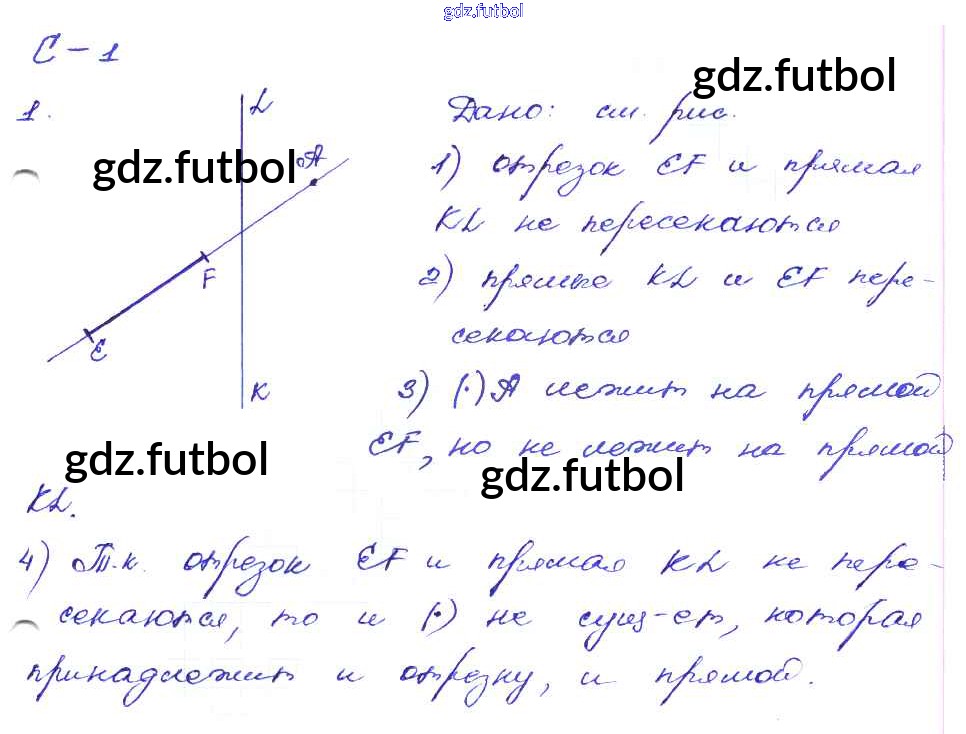 gdz.futbol
С-1
gdz.futbol
1.
L
Дано: см. рис.
gdz.futbol
A
1) отрезок EF и прямая
KL не пересекаются
F
2) прямые KL и EF пере-
секаются
E
K
3) (·) A лежит на прямой
EF, но не лежит на прямой
gdz.futbol
gdz.futbol
KL.
4) Т.к. отрезок EF и прямая KL не пере-
секаются, то и (·) не сущ-ет, которая
принадлежит и отрезку, и прямой.